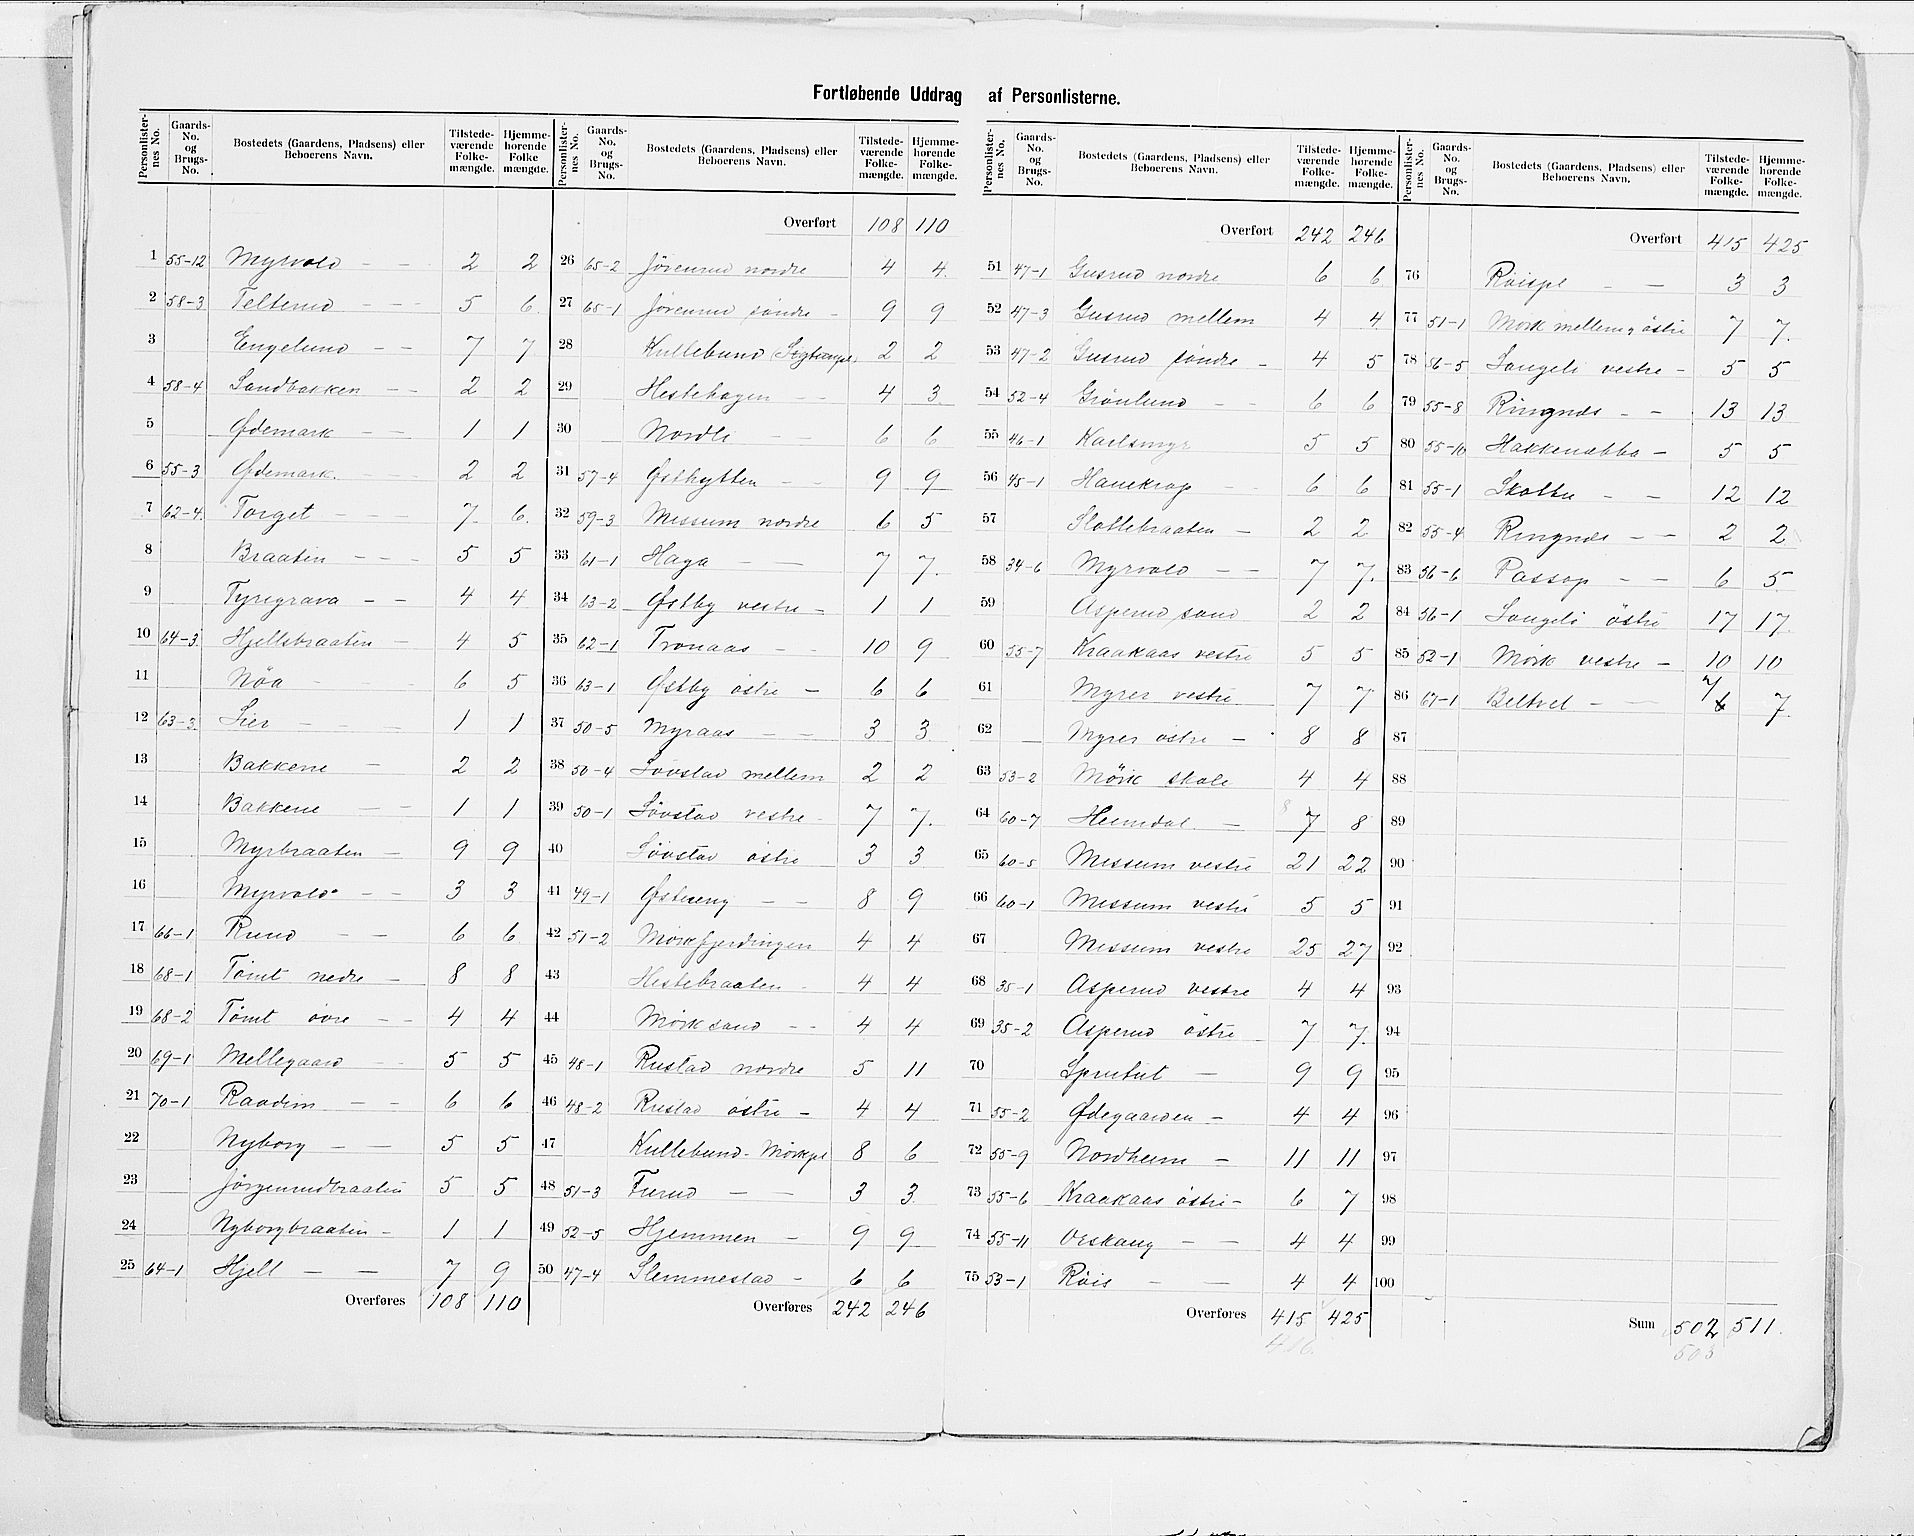 Fortløbende Uddrag af Personlisterne.
Personlisternes No. Gaards-No. og Brugs-No. Bostedets (Gaardens, Pladsens) eller Beboerens Navn. Tilstedeværende Folkemængde. Hjemmehørende Folkemængde.
1 55-12 Myrvold - - 2 2
2 58-3 Telterud - - - 5 6
3 Engelund - - 7 7
4 58-4 Sandbakken - - 2 2
5 Ødemark - - 1 1
6 55-3 Ødemark. 2 2
7 62-4 Torget - - 7 6
8 Braaten - - - 5 5
9 Tyregrava - - 4 4
10 64-3 Hjellsbraaten - 4 5
11 Nöa - 6 5
12 63-3 Lier - - - 1 1
13 Bakkene - 2 2
14 Bakkene - - 1 1
15 Myrbraaten - 9 9
16 Myrvold - - 3 3
17 66-1 Ruud - - 6 6
18 68-1 Tömt nedre - 8 8
19 68-2 Tömt övre - - 4 4
20 69-1 Mellegaard 5 5
21 70-1 Raadim - - 6 6
22 Nyborg - - 5 5
23 Jörgenrudbraaten 5 5
24 Nyborgbraaten - 1 1
25 64-1 Hjell - - 7 9
Overføres 108 110
Personlisternes No. Gaards-No. og Brugs-No. Bostedets (Gaardens, Pladsens) eller Beboerens Navn. Tilstedeværende Folkemængde. Hjemmehørende Folkemængde.
Overført 108 110
26 65-2 Jörenrud nordre 4 4
27 65-1 Jörenrud söndre - 9 9
28 Kullebund 2 2
29 Hestehagen - - 4 3
30 Nordli - - 6 6
31 57-4 Østhytten - - 9 9
32 59-3 Messum nordre 6 5
33 61-1 Haga - - 7 7.
34 63-2 Østby vestre - 1 1
35 62-1 Tronaas - - 10 9
36 63-1 Østby östre - 6 6
37 50-5 Myraas - - 3 3
38 50-4 Lövstad mellem 2 2
39 50-1 Lövstad vestre - 7 7.
40 Lövstad östre 3 3
41 49-1 Østereng - - 8 9
42 51-2 Mörkfjerdingen 4 4
43 Hestebraaten - 4 4
44 Mörksand - - 4 4
45 48-1 Rustad nordre 5 11
46 48-2 Rustad östre - 4 4
47 Kullebund - Mörkpl 8 6
48 51-3 Furud - - 3 3
49 52-5 Hjemmen - 9 9
50 47-4 Slemmestad - 6 6
Overføres 242 246
Personlisternes No. Gaards-No. og Brugs-No. Bostedets (Gaardens, Pladsens) eller Beboerens Navn. Tilstedeværende Folkemængde. Hjemmehørende Folkemængde.
Overført 242 246
51 47-1 Gusrud nordre 6 6
52 47-3 Gusrud mellem 4 4
53 47-2 Gusrud söndre - 4 5
54 52-4 Grönlund - - 6 6
55 46-1 Karlsmyr 5 5
56 45-1 Hanekrap - 6 6
57 Slottebraaten - 2 2
58 34-6 Myrvold - - 7 7.
59 Asperud sand 2 2
60 55-7 Kraakaas vestre 5 5
61 Myrer vestre 7 7
62 Myrer östre - 8 8
63 53-2 Mörk skole 4 4
64 60-7 Heimdal. - 8 7 8
65 60-5 Messum vestre 21 22
66 60-1 Messum vestre 5 5
67 Messum vestre 25 27
68 35-1 Asperud vestre 4 4
69 35-2 Asperud östre 7 7.
70 Sprutut - 9 9
71 55-2 Ødegaarden - 4 4
72 55-9 Nordheim - 11 11
73 55-6 Kraakaas östre - 6 7
74 55-11 - - 4 4
75 53-1 Röis - - 4 4
Overføres 415 425
416.
Personlisternes No. Gaards-No. og Brugs-No. Bostedets (Gaardens, Pladsens) eller Beboerens Navn. Tilstedeværende Folkemængde. Hjemmehørende Folkemængde.
Overført 415 425
76 Röispl - - 3 3
77 51-1 Mörk mellem, östre 7 7.
78 56-5 Langeli vestre - 5 5
79 55-8 Ringnæs - - 13 13
80 55-10 Hakkenabba - 5 5
81 55-1 Skotbu - - 12 12
82 55-4 Ringnæs - - 2 2
83 56-6 Passop - - 6 5
84 56-1 Langeli östre 17 17.
85 52-1 Mörk vestre - 10 10
86 67-1 Beltvet - - 7 6 7.
87
88
89
90
91
92
93
94
95
96
97
98
99
100
Sum 502 511.
503